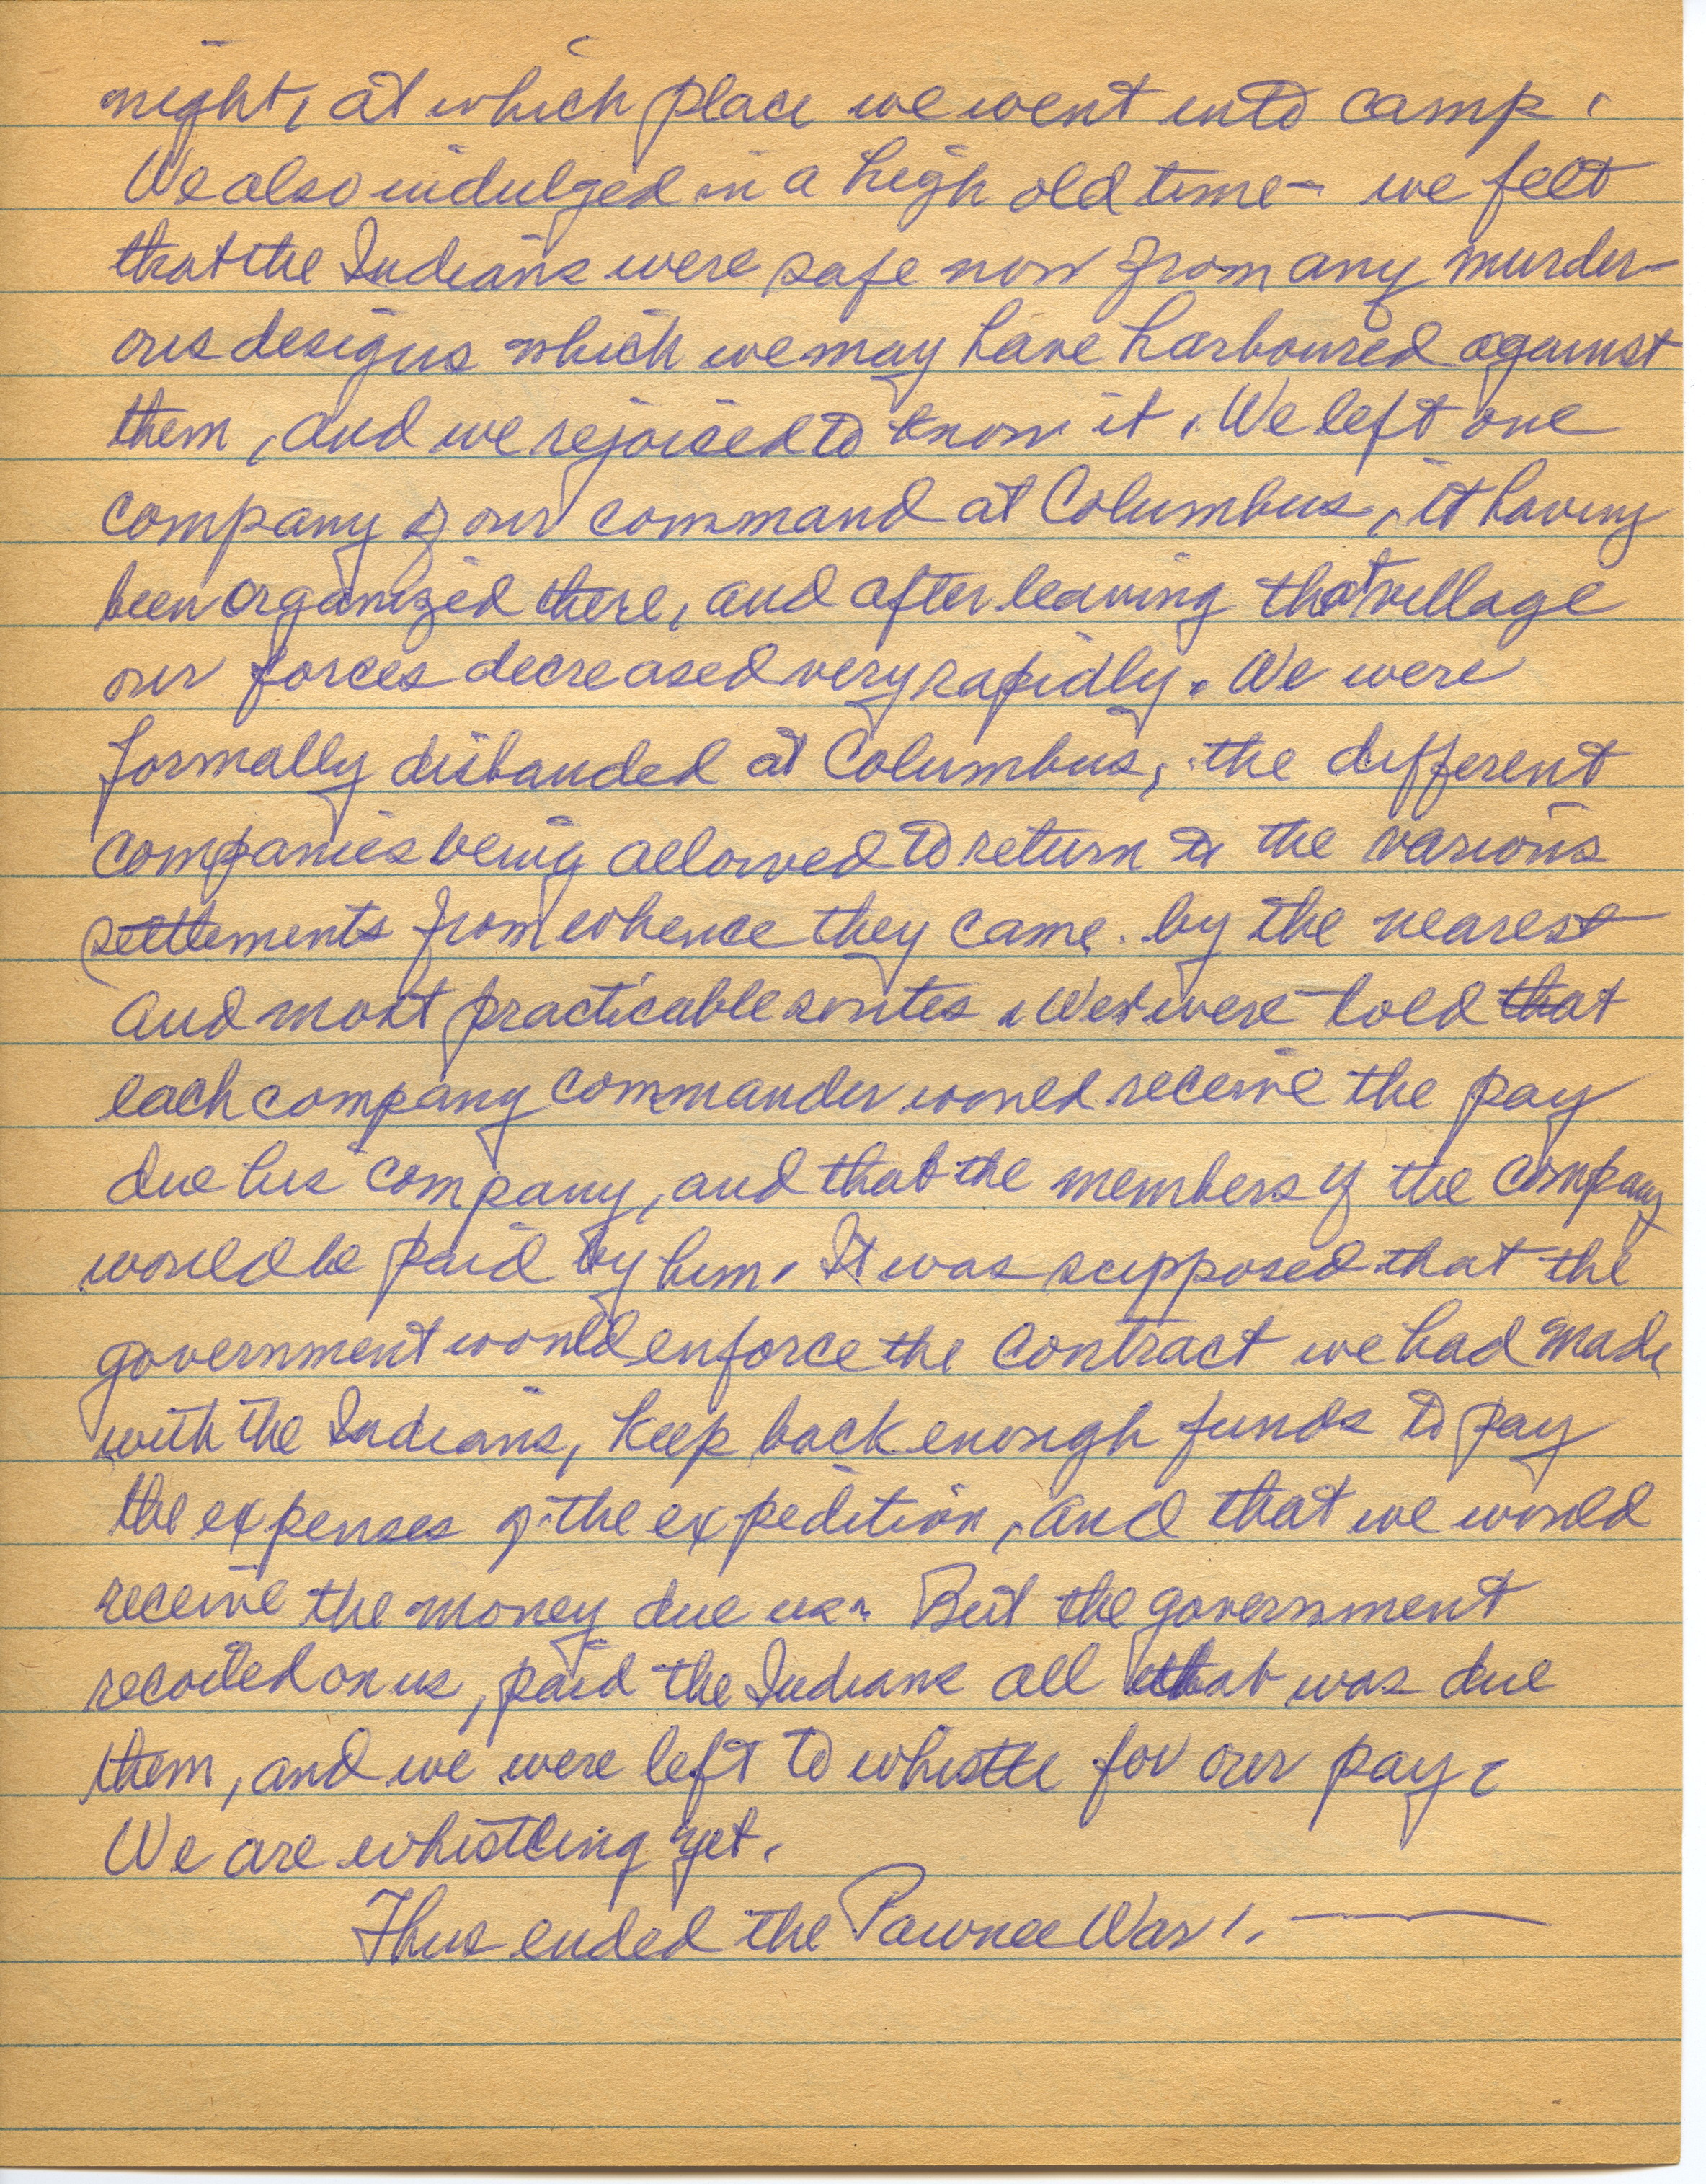 night, at which place we went into camp.
We also indulged in a high old time - we felt
that the Indians were safe now from any murder-
ous designs which we may have harboured against
them, and we rejoiced to know it. We left one
company of our command at Columbus, it having
been organized there, and after leaving that village
our forces decreased very rapidly. We were
formally disbanded at Columbus, the different
companies being allowed to return to the various
settlements from whence they came by the nearest
and most practicable routes. We were told that
each company commander would receive the pay
due his company, and that the members of the company
would be paid by him. It was supposed that the
government would enforce the contract we had made
with the Indians, keep back enough funds to pay
the expenses of the expedition, and that we would
receive the money due us. But the government
recoiled on us, paid the Indians all that was due
them, and we were left to whistle for our pay.
We are whistling yet.
Thus ended the Pawnee War!. ———